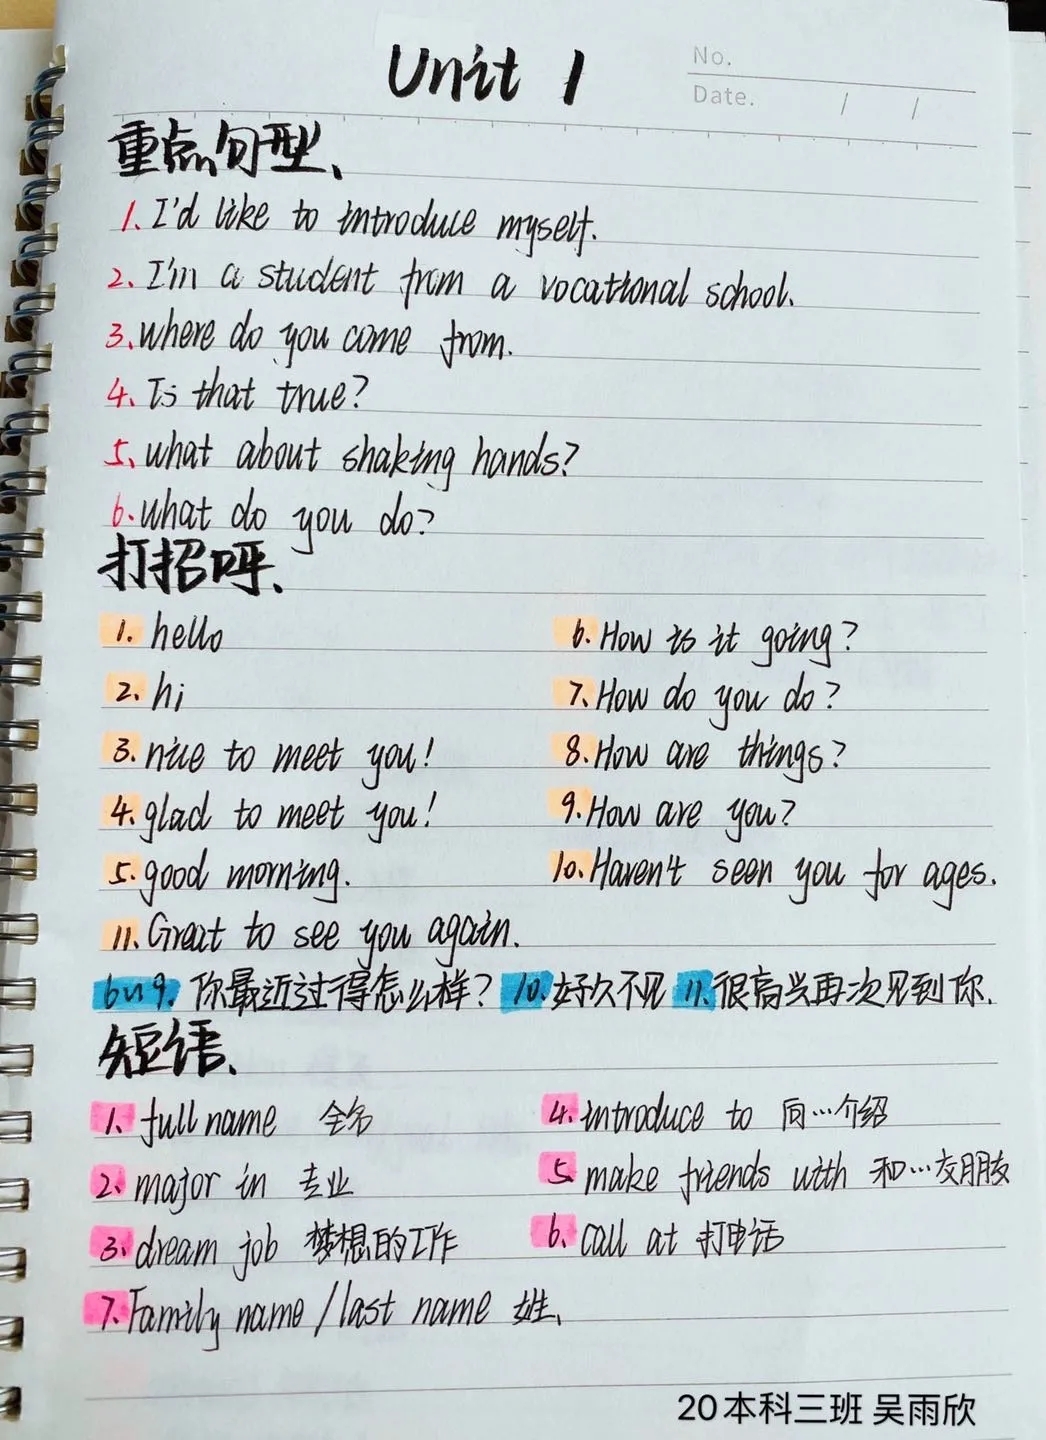 Unit 1
No.
Date. / /
重点句型、
1. I'd like to introduce myself.
2. I'm a student from a vocational school.
3. where do you come from.
4. Is that true?
5. what about shaking hands?
6. what do you do?
打招呼、
1. hello 6. How is it going?
2. hi 7. How do you do?
3. nice to meet you! 8. How are things?
4. glad to meet you! 9. How are you?
5. good morning. 10. Haven't seen you for ages.
11. Great to see you again.
6~9. 你最近过得怎么样? 10. 好久不见 11. 很高兴再次见到你.
短语、
1. full name 全名 4. introduce to 向…介绍
2. major in 专业 5. make friends with 和…交朋友
3. dream job 梦想的工作 6. call at 打电话
7. Family name / last name 姓、
20本科三班 吴雨欣